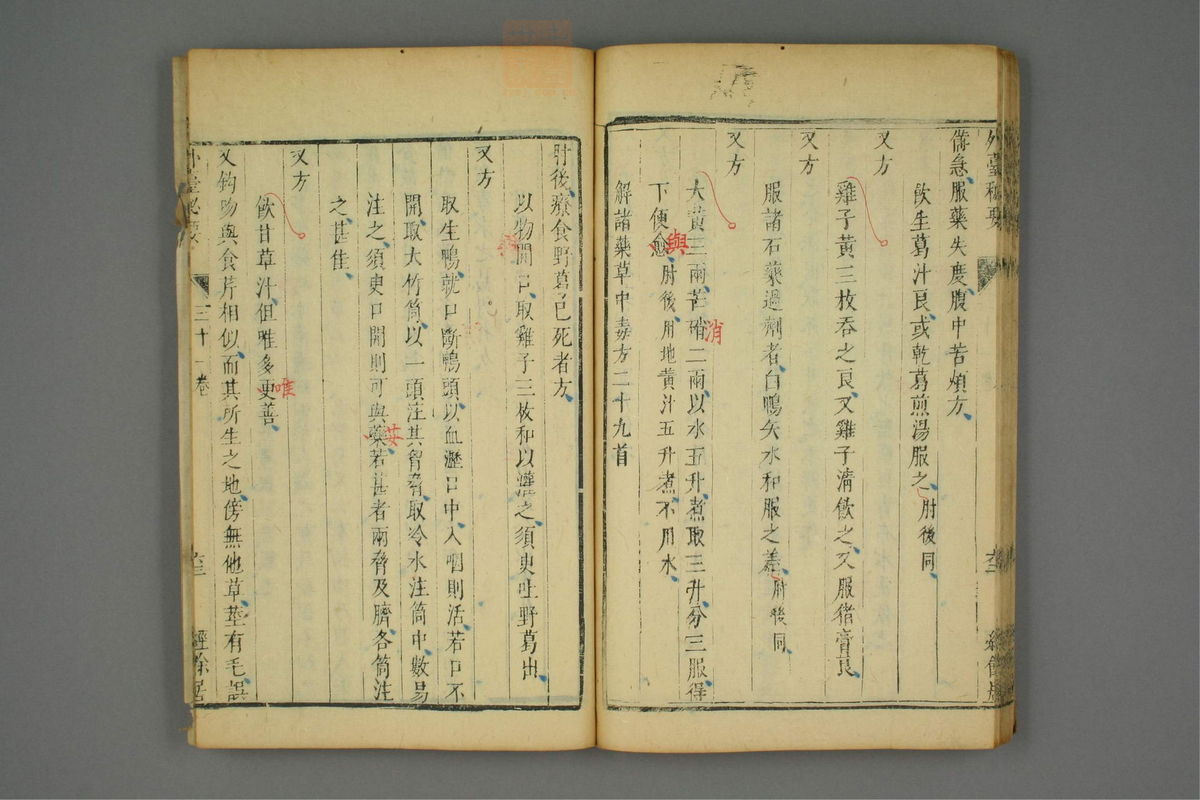 外臺秘要
備急服藥失度腹中苦煩方
飲生葛汁良或乾葛煎湯服之肘後同
又方
雞子黃三枚吞之良又雞子清飲之又服猪膏良
又方
服諸石藥過劑者白鴨矢水和服之差肘後同
又方
大黃三兩芒硝二兩以水五升煮取三升分三服得
消
下便愈肘後用地黃汁五升煮不用水
與
解諸藥草中毒方二十九首
肘後療食野葛已死者方
以物開口取雞子三枚和以灌之須臾吐野葛出
又方
取生鴨就口斷鴨頭以血瀝口中入咽則活若口不
開取大竹筒以一頭注其胷脅取冷水注筒中數易
注之須臾口開則可與藥若甚者兩脅及臍各筒注
之甚佳
又方
飲甘草汁但唯多更善
唯
又鈎吻與食芹相似而其所生之地傍無他草莖有毛誤
三十一卷
經餘居